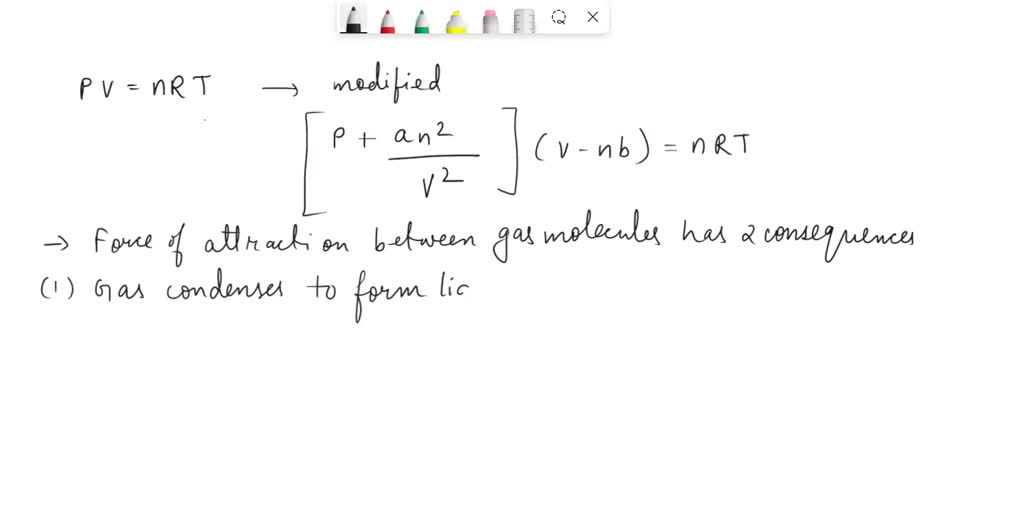 PV = nRT → modified
[P + an²/V²] (V - nb) = nRT
→ Force of attraction between gas molecules has 2 consequences
(1) Gas condenses to form lic